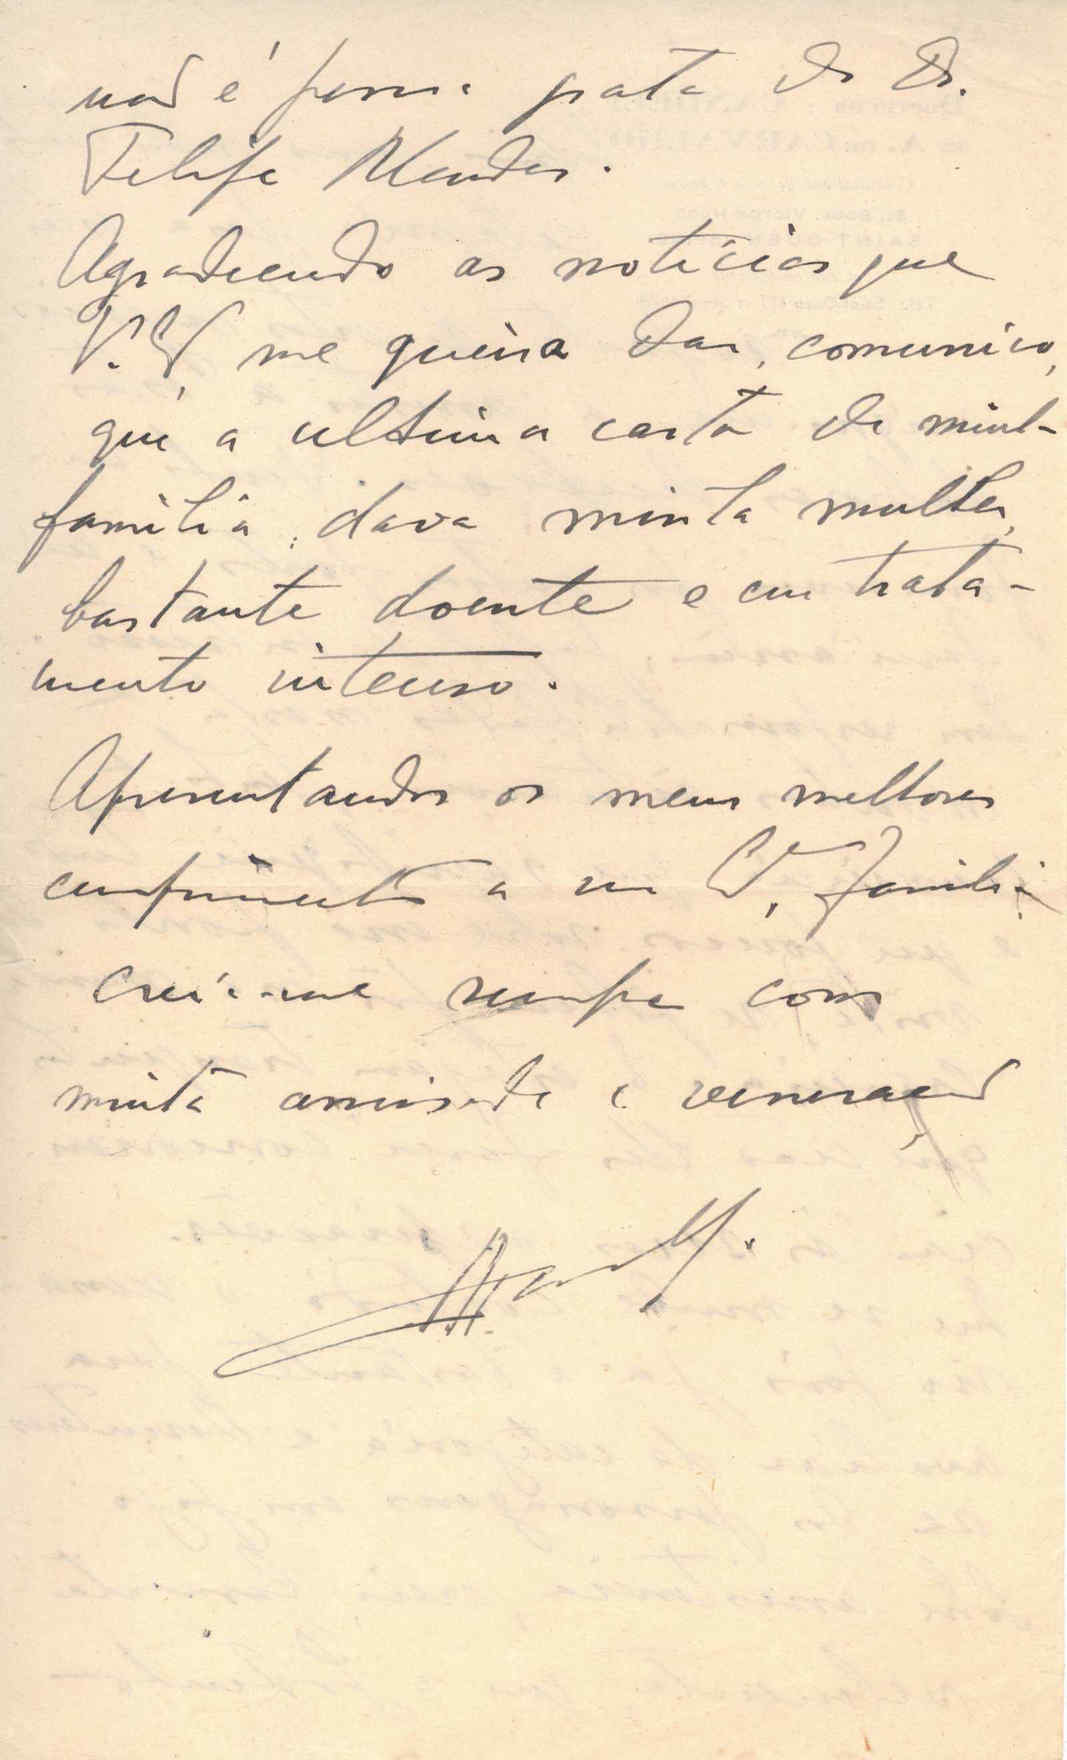 não é persona grata do Dr.
Felipe Mendes.
Agradecendo as noticias que
V. Ex.ª me queira dar, comunico,
que a ultima carta de minha
familia, dava minha mulher,
bastante doente e em trata-
mento intenso.
Apresentando os meus melhores
cumprimentos a sua Ex.ª familia
creia-me sempre com
minha amisade e veneração